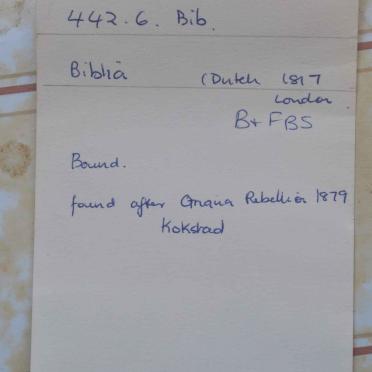 442.6. Bib.
Biblia (Dutch 1817
London
B+FBS
Bound.
found after Griqua Rebellion 1879
Kokstad